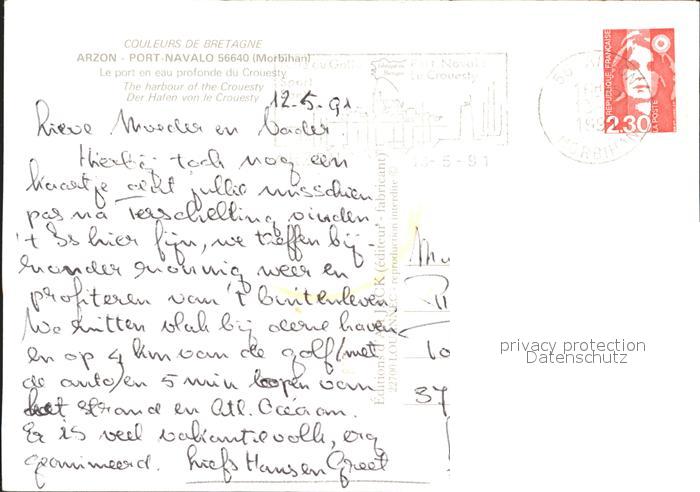 COULEURS DE BRETAGNE
ARZON - PORT-NAVALO 56640 (Morbihan)
Le port en eau profonde du Crouesty
The harbour of the Crouesty
Der Hafen von le Crouesty
12.5.91.
Lieve Moeder en Vader
Hierbij toch nog een
kaartje dat jullie misschien
pas na Terschelling vinden.
't Is hier fijn, we treffen bij-
zonder zonnig weer en
profiteren van 't buitenleven.
We zitten vlak bij deze haven
en op 4 km van de golf (met
de auto) en 5 min lopen van
het strand en Atl. Océan.
Er is veel vakantievolk, erg
geanimeerd. Liefs Hans en Greet
Port Navalo
Le Crouesty
13-5-91
MORBIHAN
RÉPUBLIQUE FRANÇAISE
LA POSTE
2.30
(éditeur - fabricant)
reproduction interdite ©
10
37
privacy protection
Datenschutz